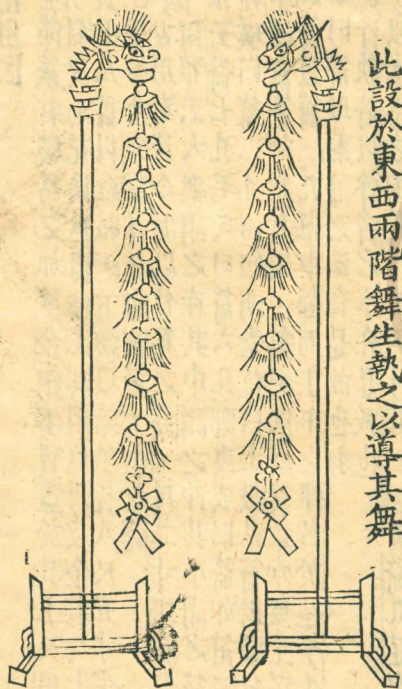 此設於東西兩階舞生執之以導其舞